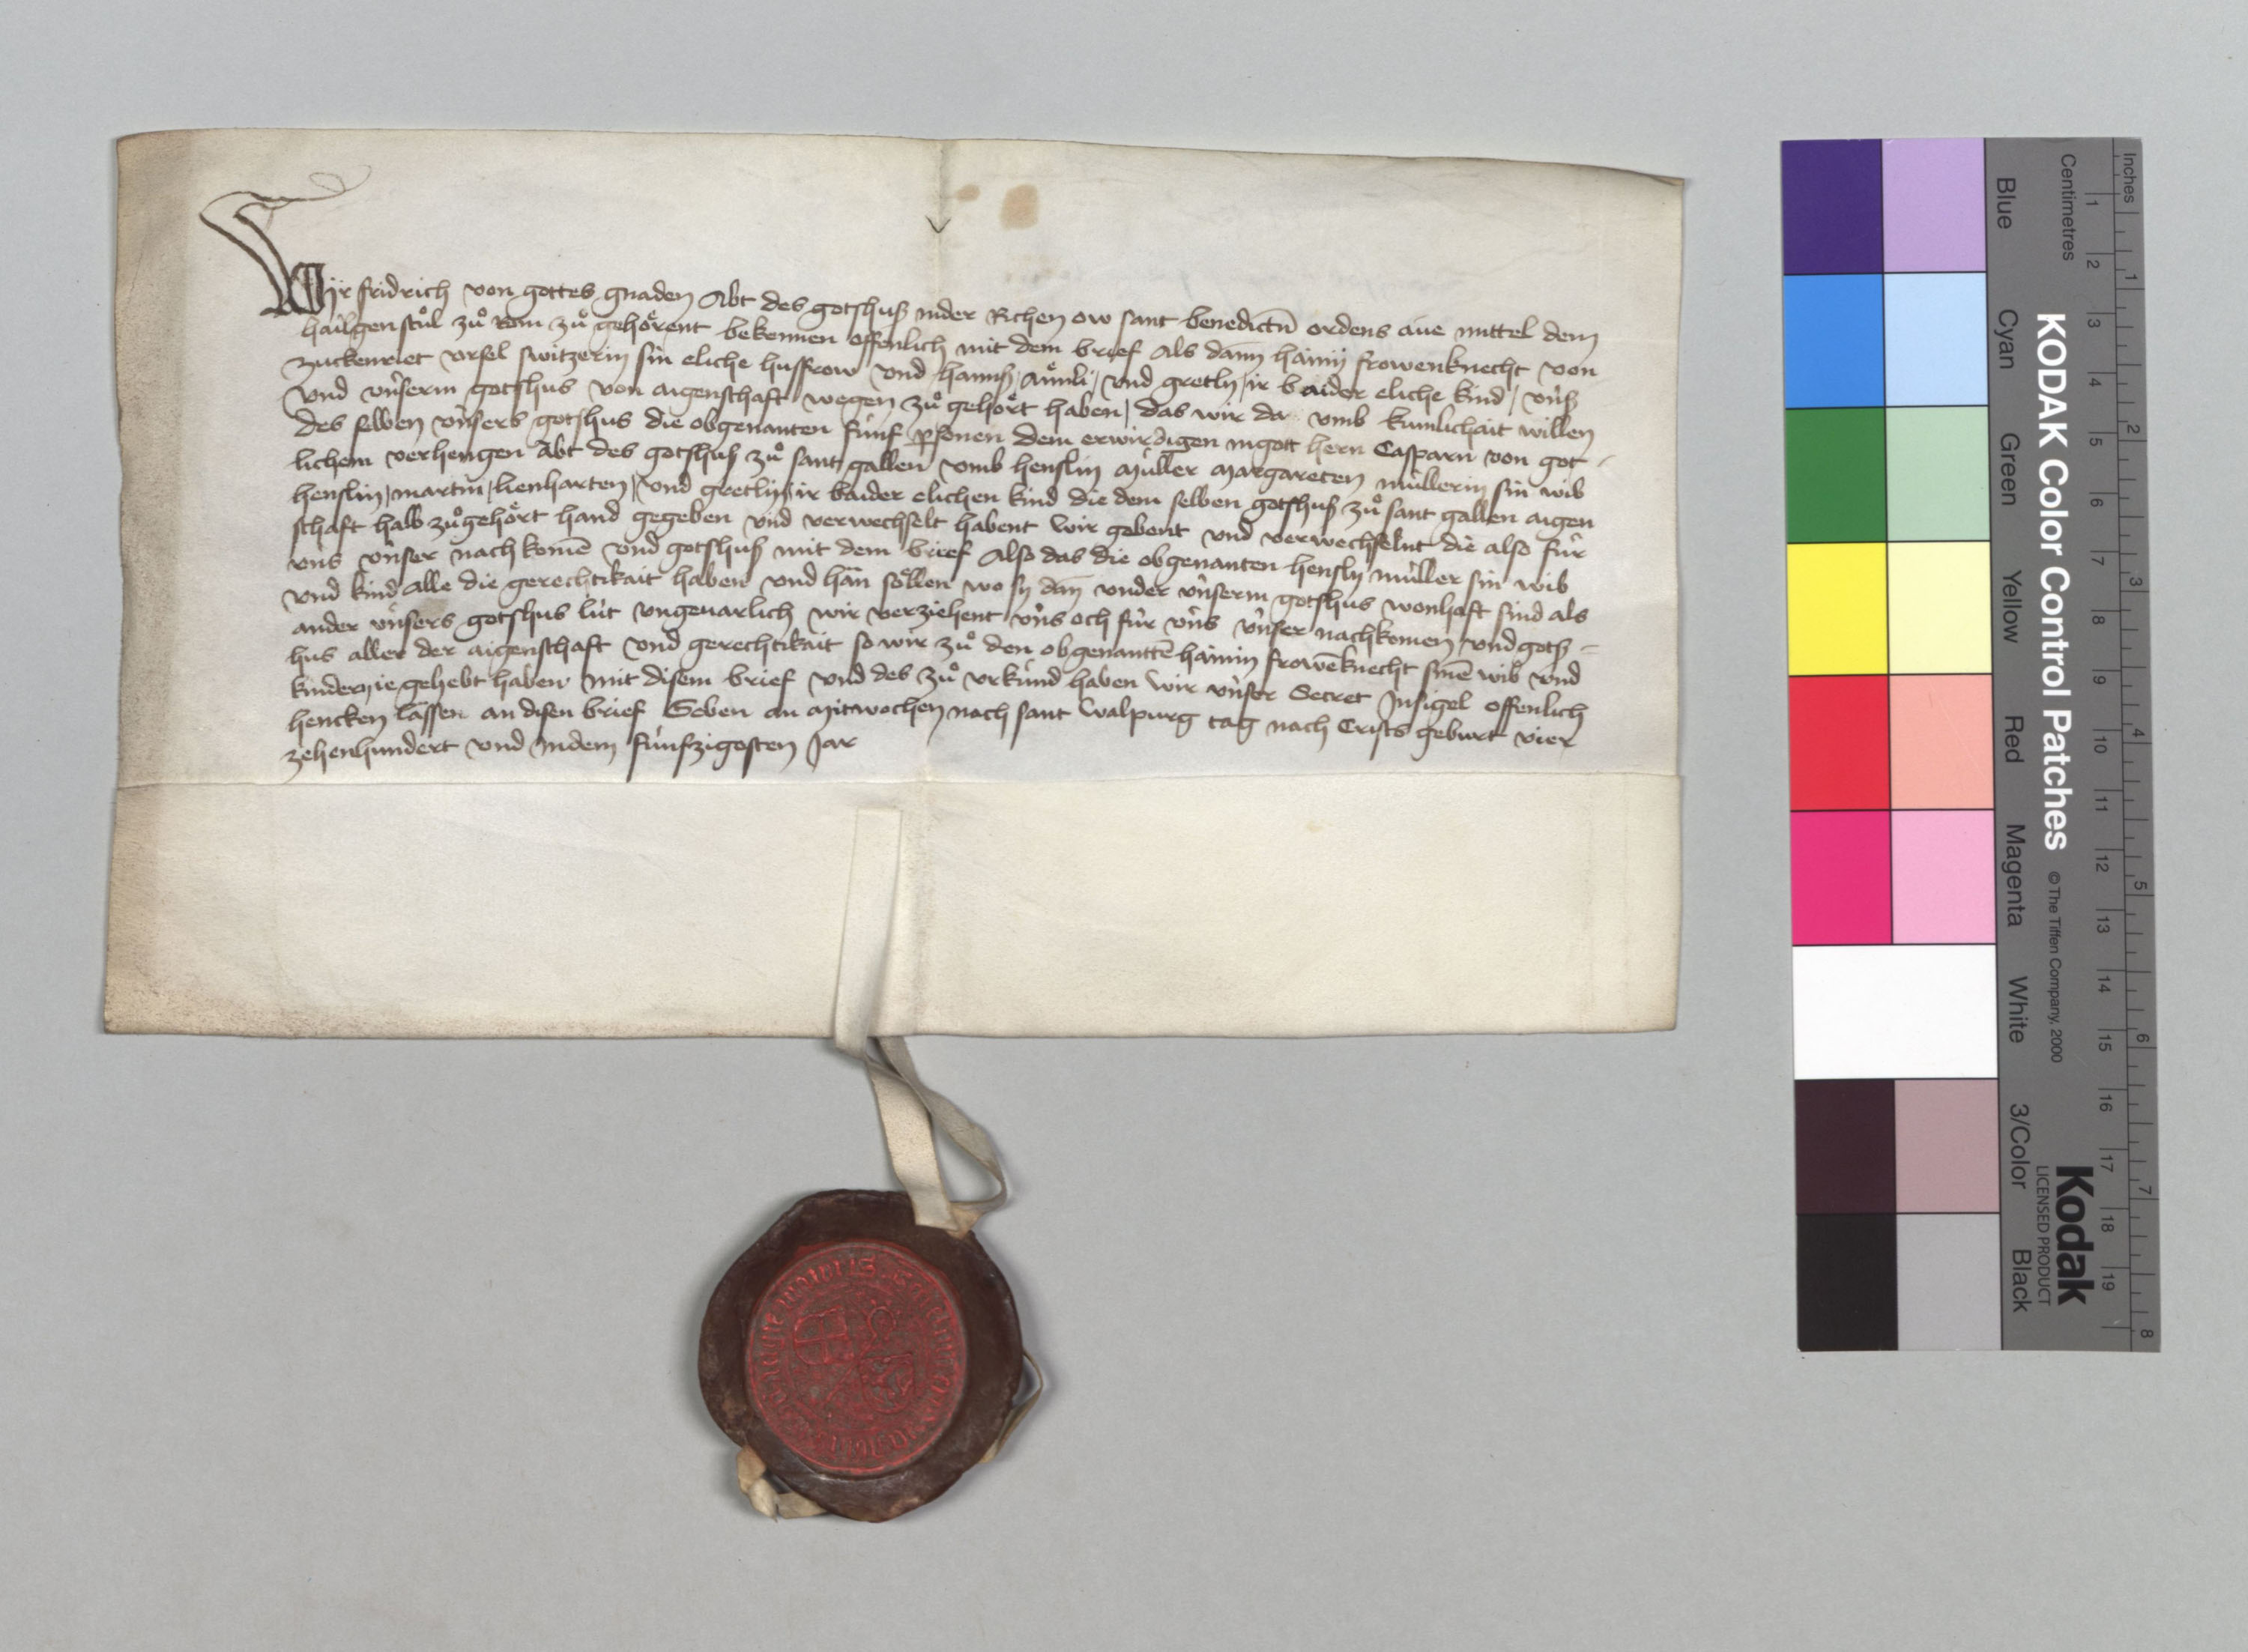 Wir fridrich von gottes gnaden Abt des gotzhuß inder Richen ow sant benedictū ordens ane mittel dem
hailgen stůl zů Rom zů gehörent bekennen offenlich mit dem brief Als dann hainÿ frowenknecht von
zuckenriet vrsel switzerin sin eliche husfrow vnd hannß / / vnd gretly / ir baider eliche kind / vnß
vnd vnserm gotzhus von aigenschaft wegen zů gehört haben / das wir da vmb kumlichait willen
des selben vnsers gotzhus die obgenanten fünf psonen dem erwirdigen ingott hern Casparn von got -
lichem verhengen Abt des gotzhuß zů sant gallen vmb henslin Müller Margareten müllerin sin wib
henslin / martin / lienharten / vnd gretlin / ir baider elichen kind die dem selben gotzhuß zů sant gallen aigen
schaft halb zůgehört hand gegeben vnd verwechselt habent wir gebent vnd verwechselnt die also für
vns vnser nachkomē vnd gotzhuß mit dem brief Also das die obgenanten hensly müller sin wib
vnd kind alle die gerechtikait haben vnd hān söllen wo sy dān vnder vnserm gotzhus wonhaft sind als
ander vnsers gotzhus lüt vngeuarlich wir verziehent vns och für vns vnser nachkomen vnd gotz -
hus aller der aigenschaft vnd gerechtikait so wir zů den obgenantē hainin frowēknecht sinē wib vnd
kindern ie gehebt haben mit disem brief vnd des zů vrkünd haben wir vnser Secret Insigel offenlich
hencken lassen an disen brief Geben an mitwochen nach sant walpurg tag nach Cristz geburt vier
zehenhundert vnd indem fünfzigosten Jar
KODAK Color Control Patches
© The Tiffen Company, 2000
Kodak
LICENSED PRODUCT
Blue
Cyan
Green
Yellow
Red
Magenta
White
3/Color
Black
Inches
1 2 3 4 5 6 7 8
Centimetres
1 2 3 4 5 6 7 8 9 10 11 12 13 14 15 16 17 18 19